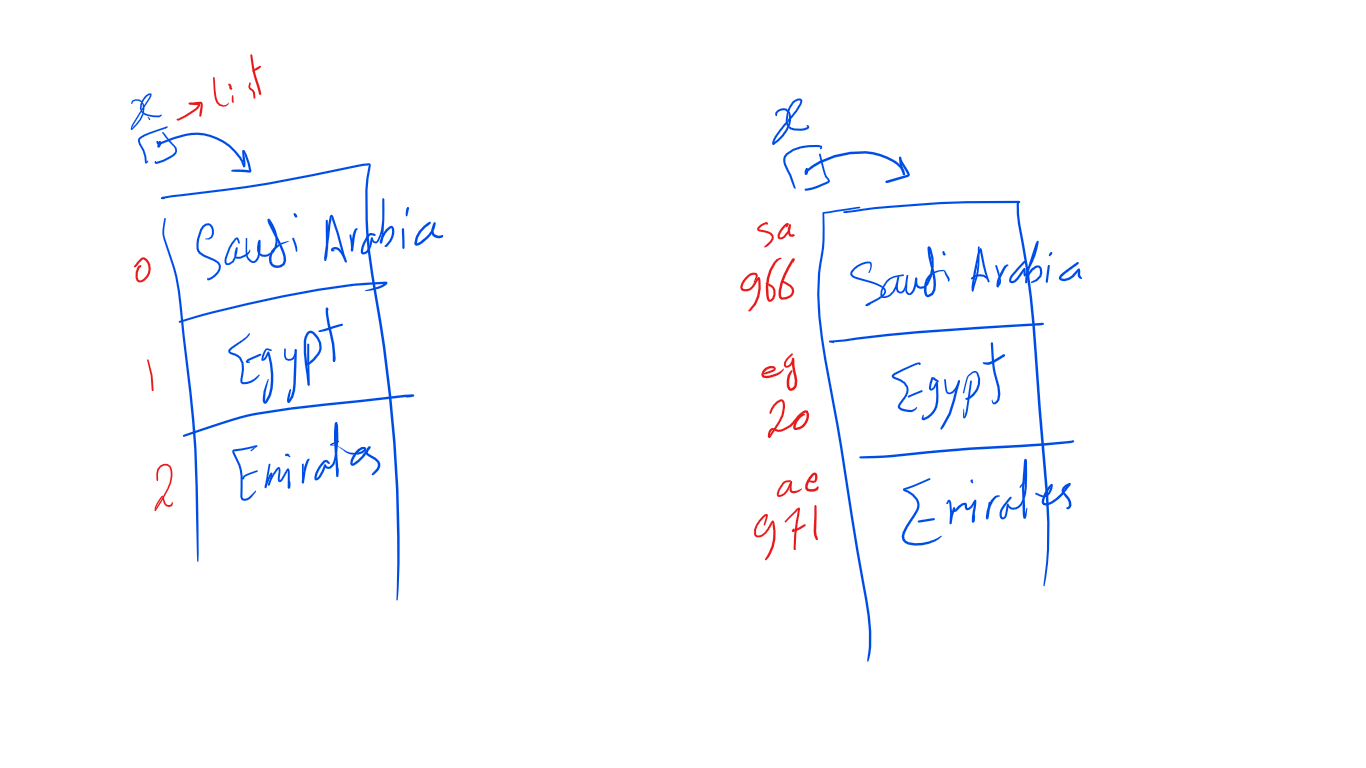 x → List
0 Saudi Arabia
1 Egypt
2 Emirates
x
sa
966 Saudi Arabia
eg
20 Egypt
ae
971 Emirates